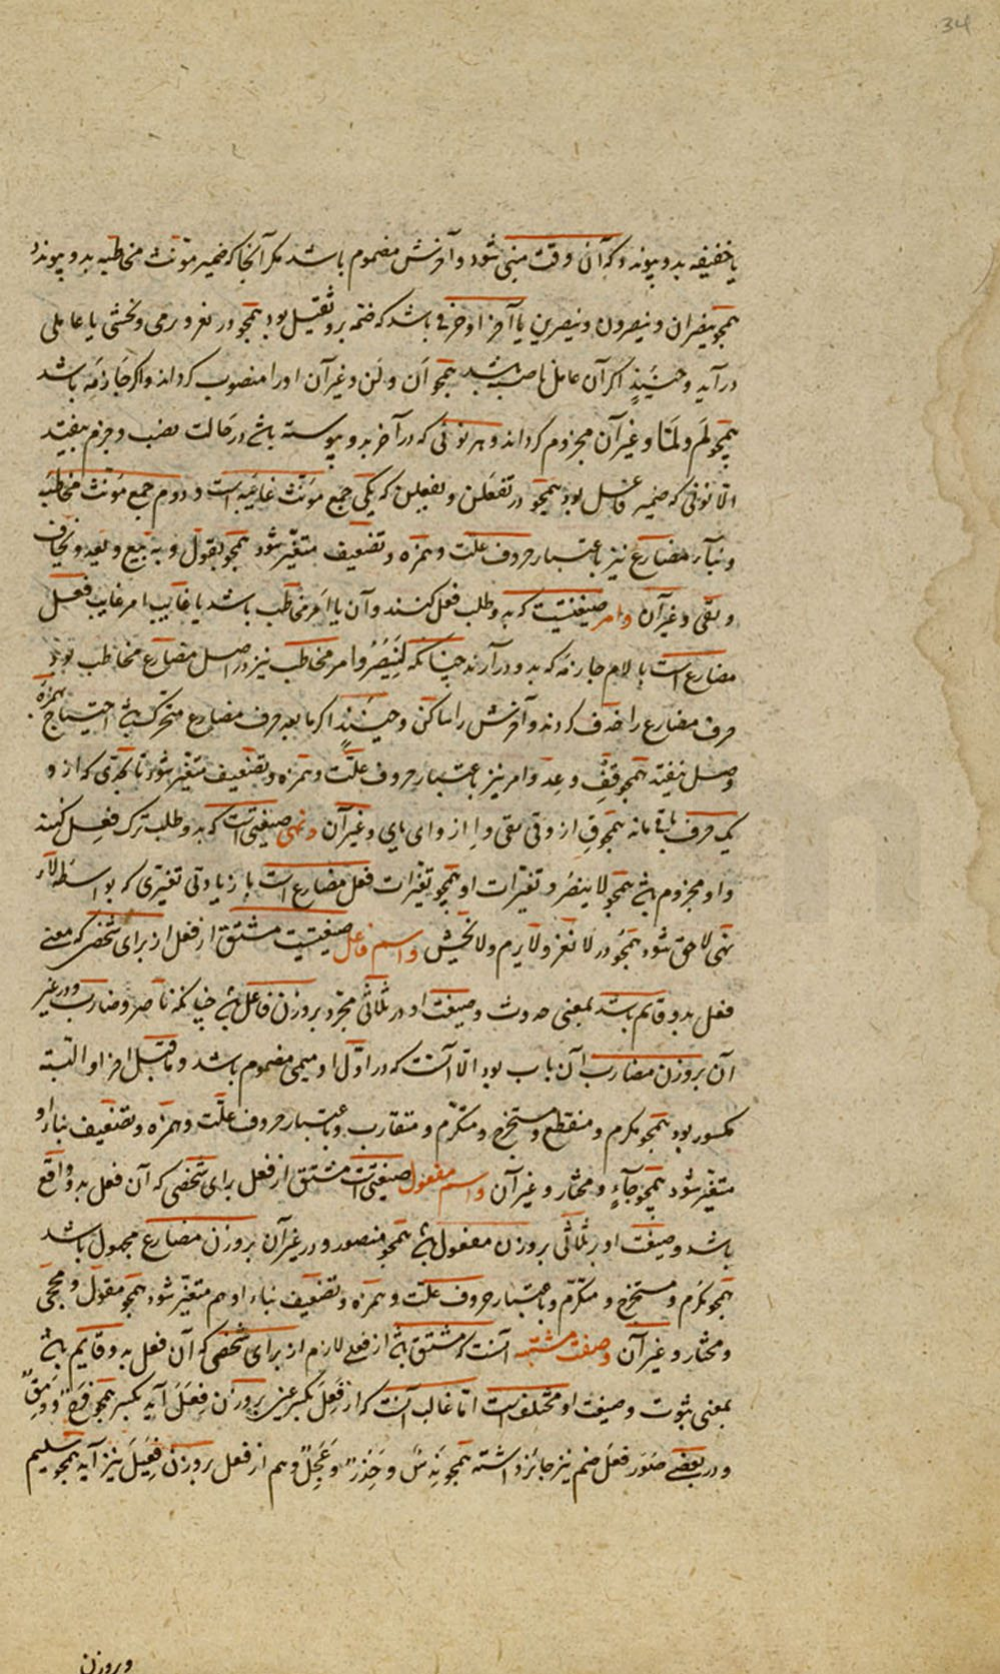 34
یا خفیفه بدو پیوندد که آن وقت مبنی شود و آخرش مضموم باشد مکر آنجا که ضمیر مؤنث مخاطبه بدو پیوندد
همچو ینصران و ینصرون و تنصرین یا آخر او حرفی باشد که ضمه برو ثقیل بود همچو در یغزو و یرمی و یخشی یا عاملی
درآید و حینئذٍ اکر آن عامل ناصب باشد همچو اَن و لَن و غیر آن او را منصوب کرداند و اکر جازمه باشد
همچو لَم و لمّا و غیر آن مجزوم کرداند و هر نونی که در آخر بدو پیوسته باشد در حالت نصب و جزم بیفتد
الّا نونی که ضمیر فاعل بود همچو در تفعلن و یفعلن که یکی جمع مؤنث غایبه است و دوم جمع مؤنث مخاطبه
و بناء مضارع نیز باعتبار حروف علّت و همزه و تضعیف متغیّر شود همچو یقول و یبیع و یعد و یخاف
و یقی و غیر آن و امر صیغتیست که بدو طلب فعل کنند و آن یا امر مخاطب باشد یا غایب امر غایب فعل
مضارع است با لام جازمه که بدو درآرند چنانکه لِیَنصُر و امر مخاطب نیز در اصل مضارع مخاطب بود
حرف مضارع را حذف کردند و آخرش را ساکن و حینئذٍ اکر ما بعد حرف مضارع متحرک باشد احتیاج بهمزه
وصل نیفتد همچو قف و عد و امر نیز باعتبار حروف علّت و همزه و تضعیف متغیر شود تا بحدّی که از و
یک حرف باقی ماند همچو قِ از وقی یقی و اِ از وای یای و غیر آن و نهی صیغتی است که بدو طلب ترک فعل کنند
و او مجزوم باشد همچو لا ینصُر و تغیّرات او همچو تغیّرات فعل مضارع است با زیادتی تغیّری که بواسطه لاء
نهی لاحق شود همچو در لا تغز و لا یرم و لا یخش و اسم فاعل صیغتیست مشتق از فعل از برای شخصی که معنی
فعل بدو قایم باشد بمعنی حدوث و صیغت او در ثلاثی مجرّد بر وزن فاعل باشد چنانکه ناصر و ضارب و در غیر
آن بر وزن مضارب آن باب بود الّا آنست که در اوّل او میمی مضموم باشد و ماقبل اخر او البته
مکسور بود همچو مکرم و منقطع و مستخرج و متکرّم و متقارب و باعتبار حروف علّت و همزه و تضعیف بناء او
متغیّر شود همچو جآءٍ و مختار و غیر آن و اسم مفعول صیغتی است مشتق از فعل برای شخصی که آن فعل بدو واقع
باشد و صیغت او در ثلاثی بر وزن مفعول باشد همچو منصور و در غیر آن بر وزن مضارع مجهول باشد
همچو مکرم و مستخرج و متکرّم و باعتبار حروف علّت و همزه و تضعیف بناء او هم متغیّر شود همچو مقول و مجیّ
و مختار و غیر آن و صفت مشبهه آنست که مشتق باشد از فعلی لازم از برای شخصی که آن فعل بدو قایم باشد
بمعنی ثبوت و صیغت او مختلف است اما غالب آنست که از فَعِلَ بکسر عین بر وزن فِعَل آید بکسر همچو فرح و دمق
و در بعضی صُوَر فعل ضم نیز جایز داشته همچو ندس و حذر و عجل و هم از فعل بر وزن فعیل نیز آید همچو سلیم
و بر وزن